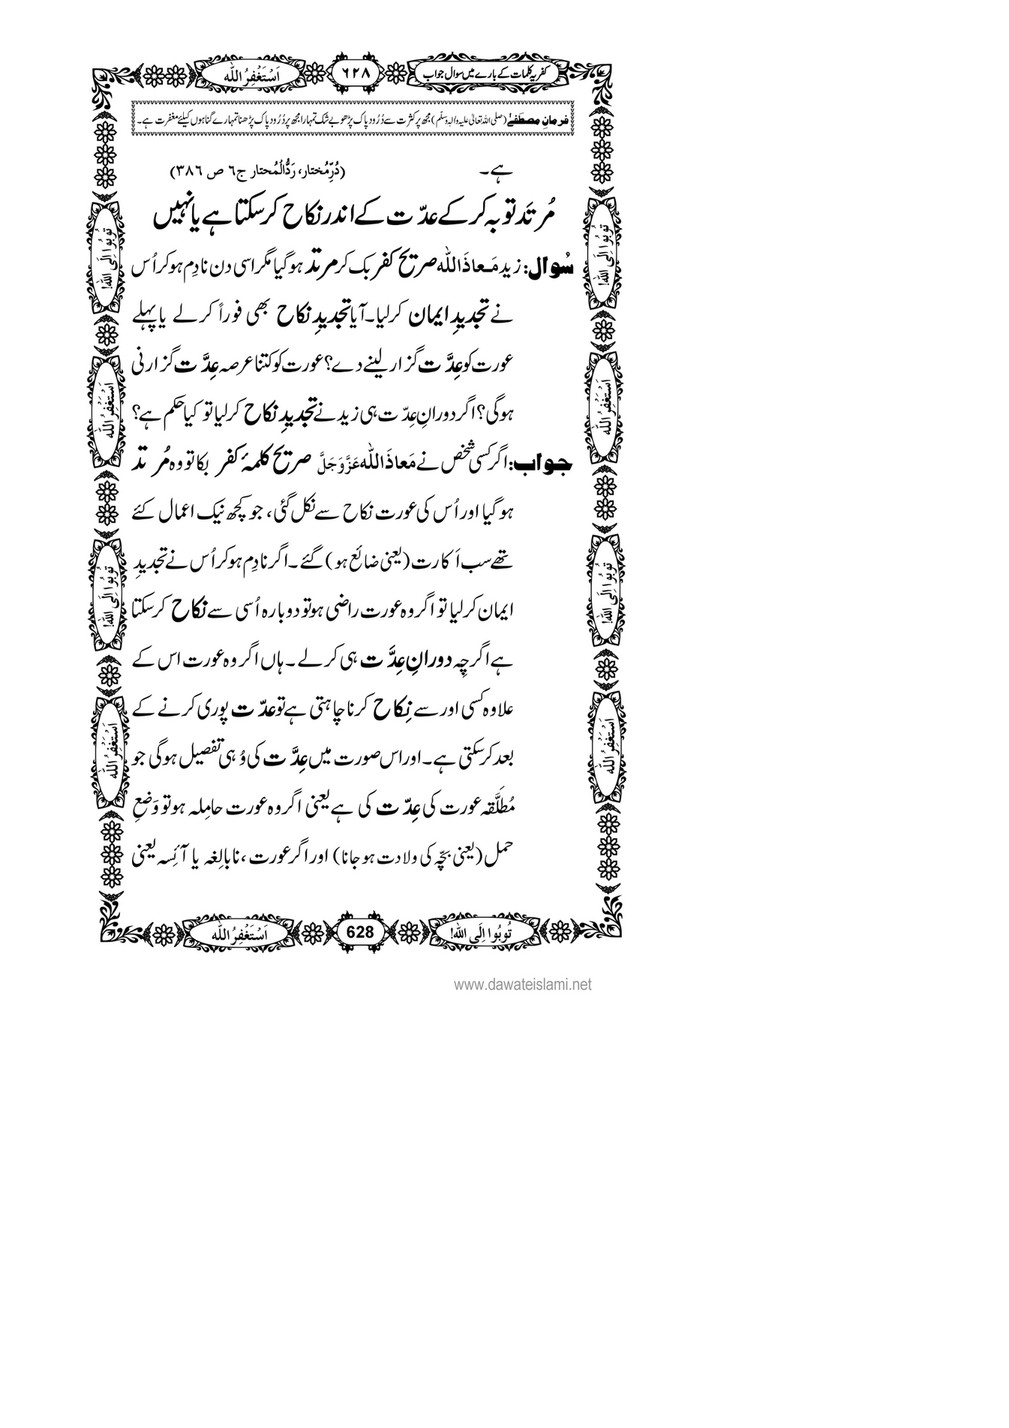 کفریہ کلمات کے بارے میں سوال جواب
٦٢٨
اَسْتَغْفِرُ اللّٰه
فرمانِ مصطفےٰ (صلی اللہ تعالیٰ علیہ والہ وسلم) مجھ پر کثرت سے دُرُود پاک پڑھو بے شک تمہارا مجھ پر دُرُود پاک پڑھنا تمہارے گناہوں کیلئے مغفرت ہے۔
ہے۔ (دُرِّمُختار، رَدُّالْمُحتار ج٦ ص ٣٨٦)
مُرتَد توبہ کر کے عدّت کے اندر نکاح کرسکتا ہے یا نہیں
سُوال: زید مَعاذَاللّٰه صریح کفر بک کر مرتد ہوگیا مگر اسی دن نادِم ہوکر اُس
نے تجدیدِ ایمان کرلیا۔ آیا تجدیدِ نکاح بھی فوراً کرلے یا پہلے
عورت کو عِدَّت گزار لینے دے؟ عورت کو کتنا عرصہ عِدَّت گزارنی
ہوگی؟ اگر دورانِ عِدّت ہی زید نے تجدیدِ نکاح کرلیا تو کیا حکم ہے؟
جواب: اگر کسی شخص نے مَعاذَ اللّٰه عَزَّوَجَلَّ صریح کلمۂ کفر بکا تو وہ مُرتد
ہوگیا اور اُس کی عورت نکاح سے نکل گئی، جو کچھ نیک اعمال کئے
تھے سب اَکارت (یعنی ضائع ہو) گئے۔ اگر نادِم ہوکر اُس نے تجدیدِ
ایمان کرلیا تو اگر وہ عورت راضی ہو تو دوبارہ اُسی سے نکاح کرسکتا
ہے اگرچِہ دورانِ عِدَّت ہی کرلے۔ ہاں اگر وہ عورت اس کے
علاوہ کسی اور سے نِکاح کرنا چاہتی ہے تو عدّت پوری کرنے کے
بعد کرسکتی ہے۔ اور اس صورت میں عِدَّت کی وُہی تفصیل ہوگی جو
مُطَلَّقہ عورت کی عِدّت کی ہے یعنی اگر وہ عورت حامِلہ ہو تو وَضعِ
حمل (یعنی بچّہ کی ولادت ہوجانا) اور اگر عورت ،نابالِغہ یا آئِسہ یعنی
تُوبُوا اِلَی اللّٰه!
اَسْتَغْفِرُ اللّٰه
تُوبُوا اِلَی اللّٰه!
اَسْتَغْفِرُ اللّٰه
تُوبُوا اِلَی اللّٰه!
اَسْتَغْفِرُ اللّٰه
تُوبُوا اِلَی اللّٰه!
اَسْتَغْفِرُ اللّٰه
تُوبُوا اِلَی اللّٰه!
628
اَسْتَغْفِرُ اللّٰه
www.dawateislami.net